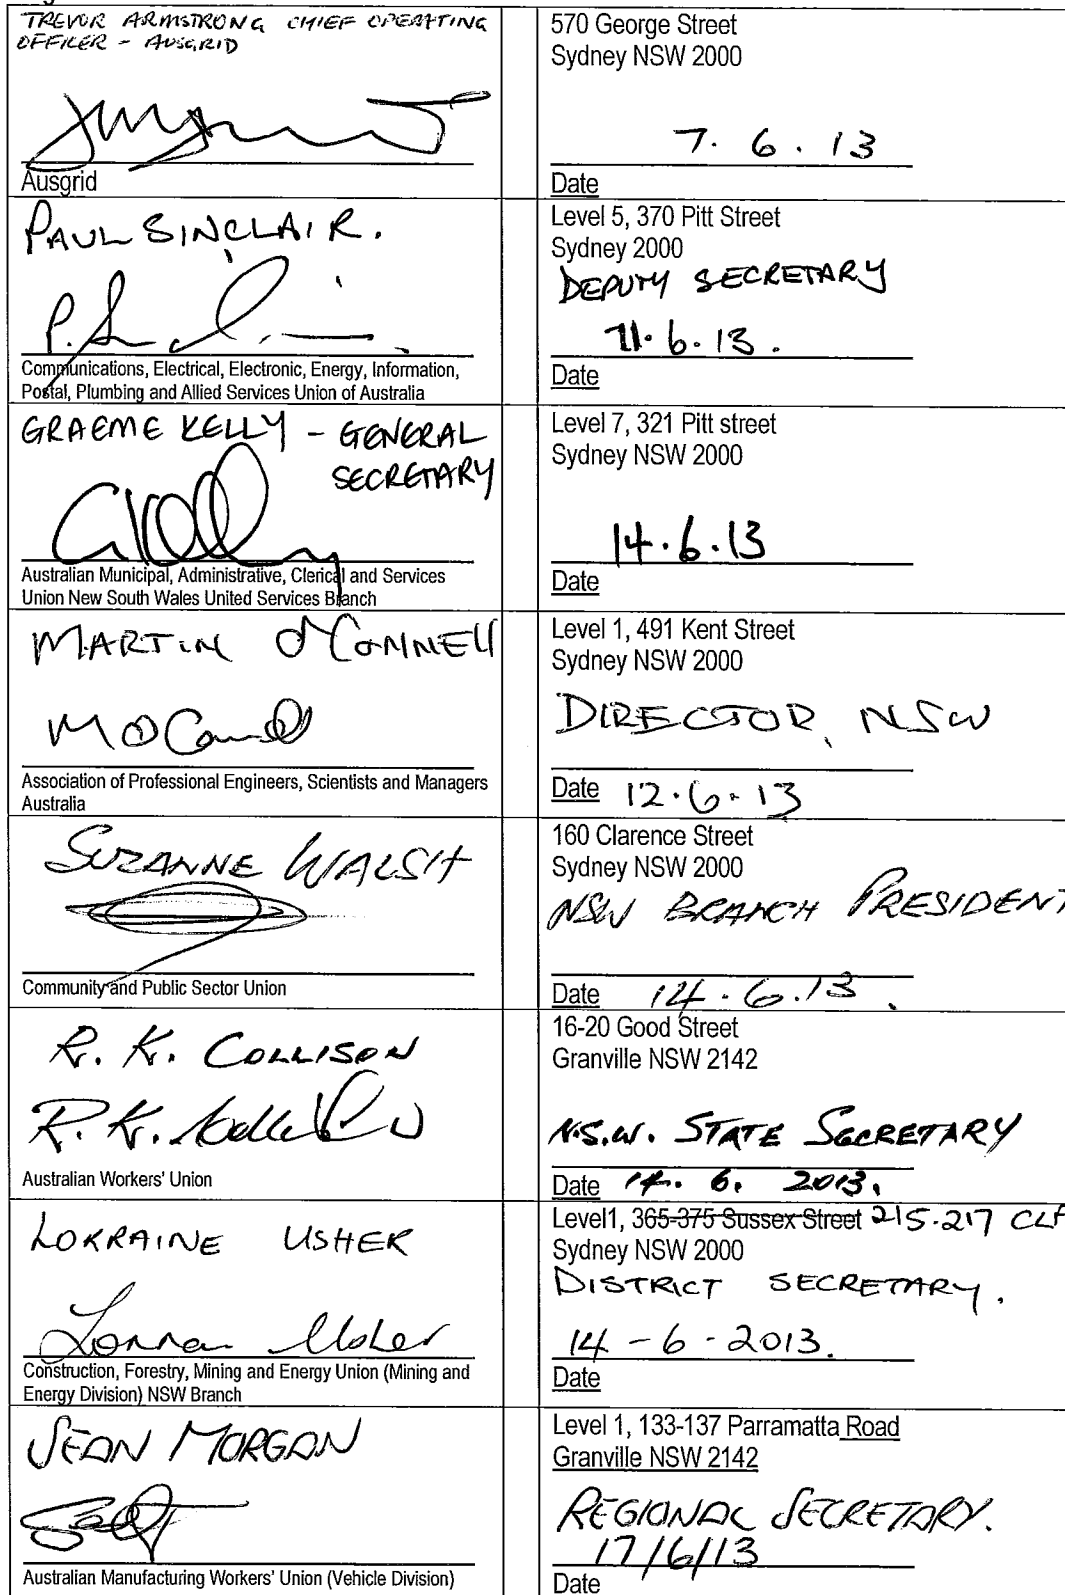 TREVOR ARMSTRONG CHIEF OPERATING
OFFICER - AUSGRID
Ausgrid
570 George Street
Sydney NSW 2000
7. 6. 13
Date
PAUL SINCLAIR.
P. S
Communications, Electrical, Electronic, Energy, Information,
Postal, Plumbing and Allied Services Union of Australia
Level 5, 370 Pitt Street
Sydney 2000
DEPUTY SECRETARY
11.6.13.
Date
GRAEME KELLY - GENERAL
SECRETARY
GKelly
Australian Municipal, Administrative, Clerical and Services
Union New South Wales United Services Branch
Level 7, 321 Pitt street
Sydney NSW 2000
14.6.13
Date
MARTIN O'CONNELL
M O'Connell
Association of Professional Engineers, Scientists and Managers
Australia
Level 1, 491 Kent Street
Sydney NSW 2000
DIRECTOR, NSW
Date 12.6.13
SUZANNE WALSH
Community and Public Sector Union
160 Clarence Street
Sydney NSW 2000
NSW BRANCH PRESIDENT
Date 14.6.13.
R. K. COLLISON
R. K. Collison
Australian Workers' Union
16-20 Good Street
Granville NSW 2142
N.S.W. STATE SECRETARY
Date 14. 6. 2013.
LORRAINE USHER
Lorraine Usher
Construction, Forestry, Mining and Energy Union (Mining and
Energy Division) NSW Branch
Level1, 365-375 Sussex Street 215-217 CLA
Sydney NSW 2000
DISTRICT SECRETARY.
14-6-2013.
Date
SEAN MORGAN
Australian Manufacturing Workers' Union (Vehicle Division)
Level 1, 133-137 Parramatta Road
Granville NSW 2142
REGIONAL SECRETARY.
17/6/13
Date